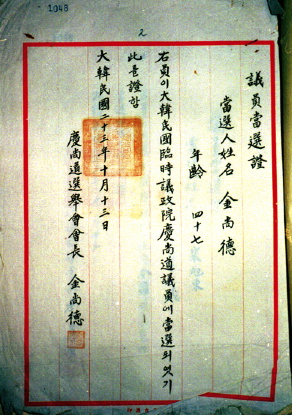 1048
2
議員當選證
當選人姓名 金尚德
年齡 四十七
右員이大韓民國臨時議政院慶尚道議員에當選되엿기
此를證함
大韓民國二十三年十月十三日
慶尚道選擧會會長 金尚德